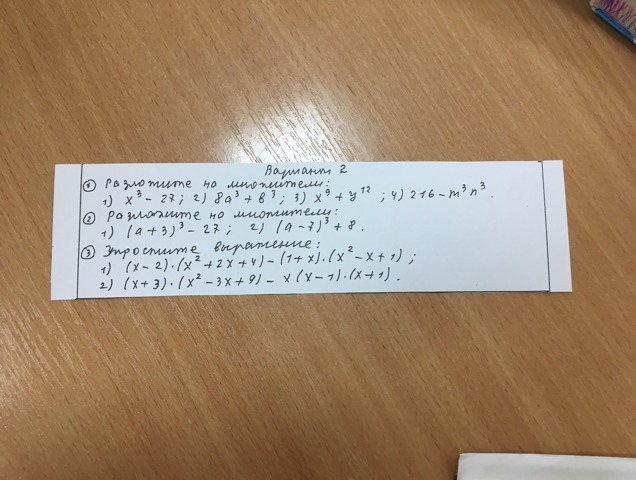 Вариант 2
① Разложите на множители:
1) x³ - 27; 2) 8a³ + b³; 3) x⁹ + y¹²; 4) 216 - m³n³.
② Разложите на множители:
1) (a+3)³ - 27; 2) (a-7)³ + 8.
③ Упростите выражение:
1) (x-2)·(x²+2x+4) - (1+x)·(x²-x+1);
2) (x+3)·(x²-3x+9) - x(x-1)·(x+1).